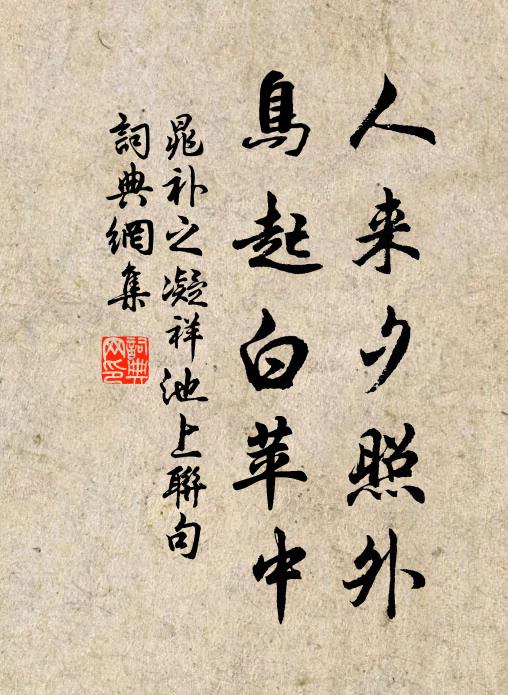 人来夕照外
鳥起白苹中
晁补之凝祥池上聯句
詞典網集
詞典网印